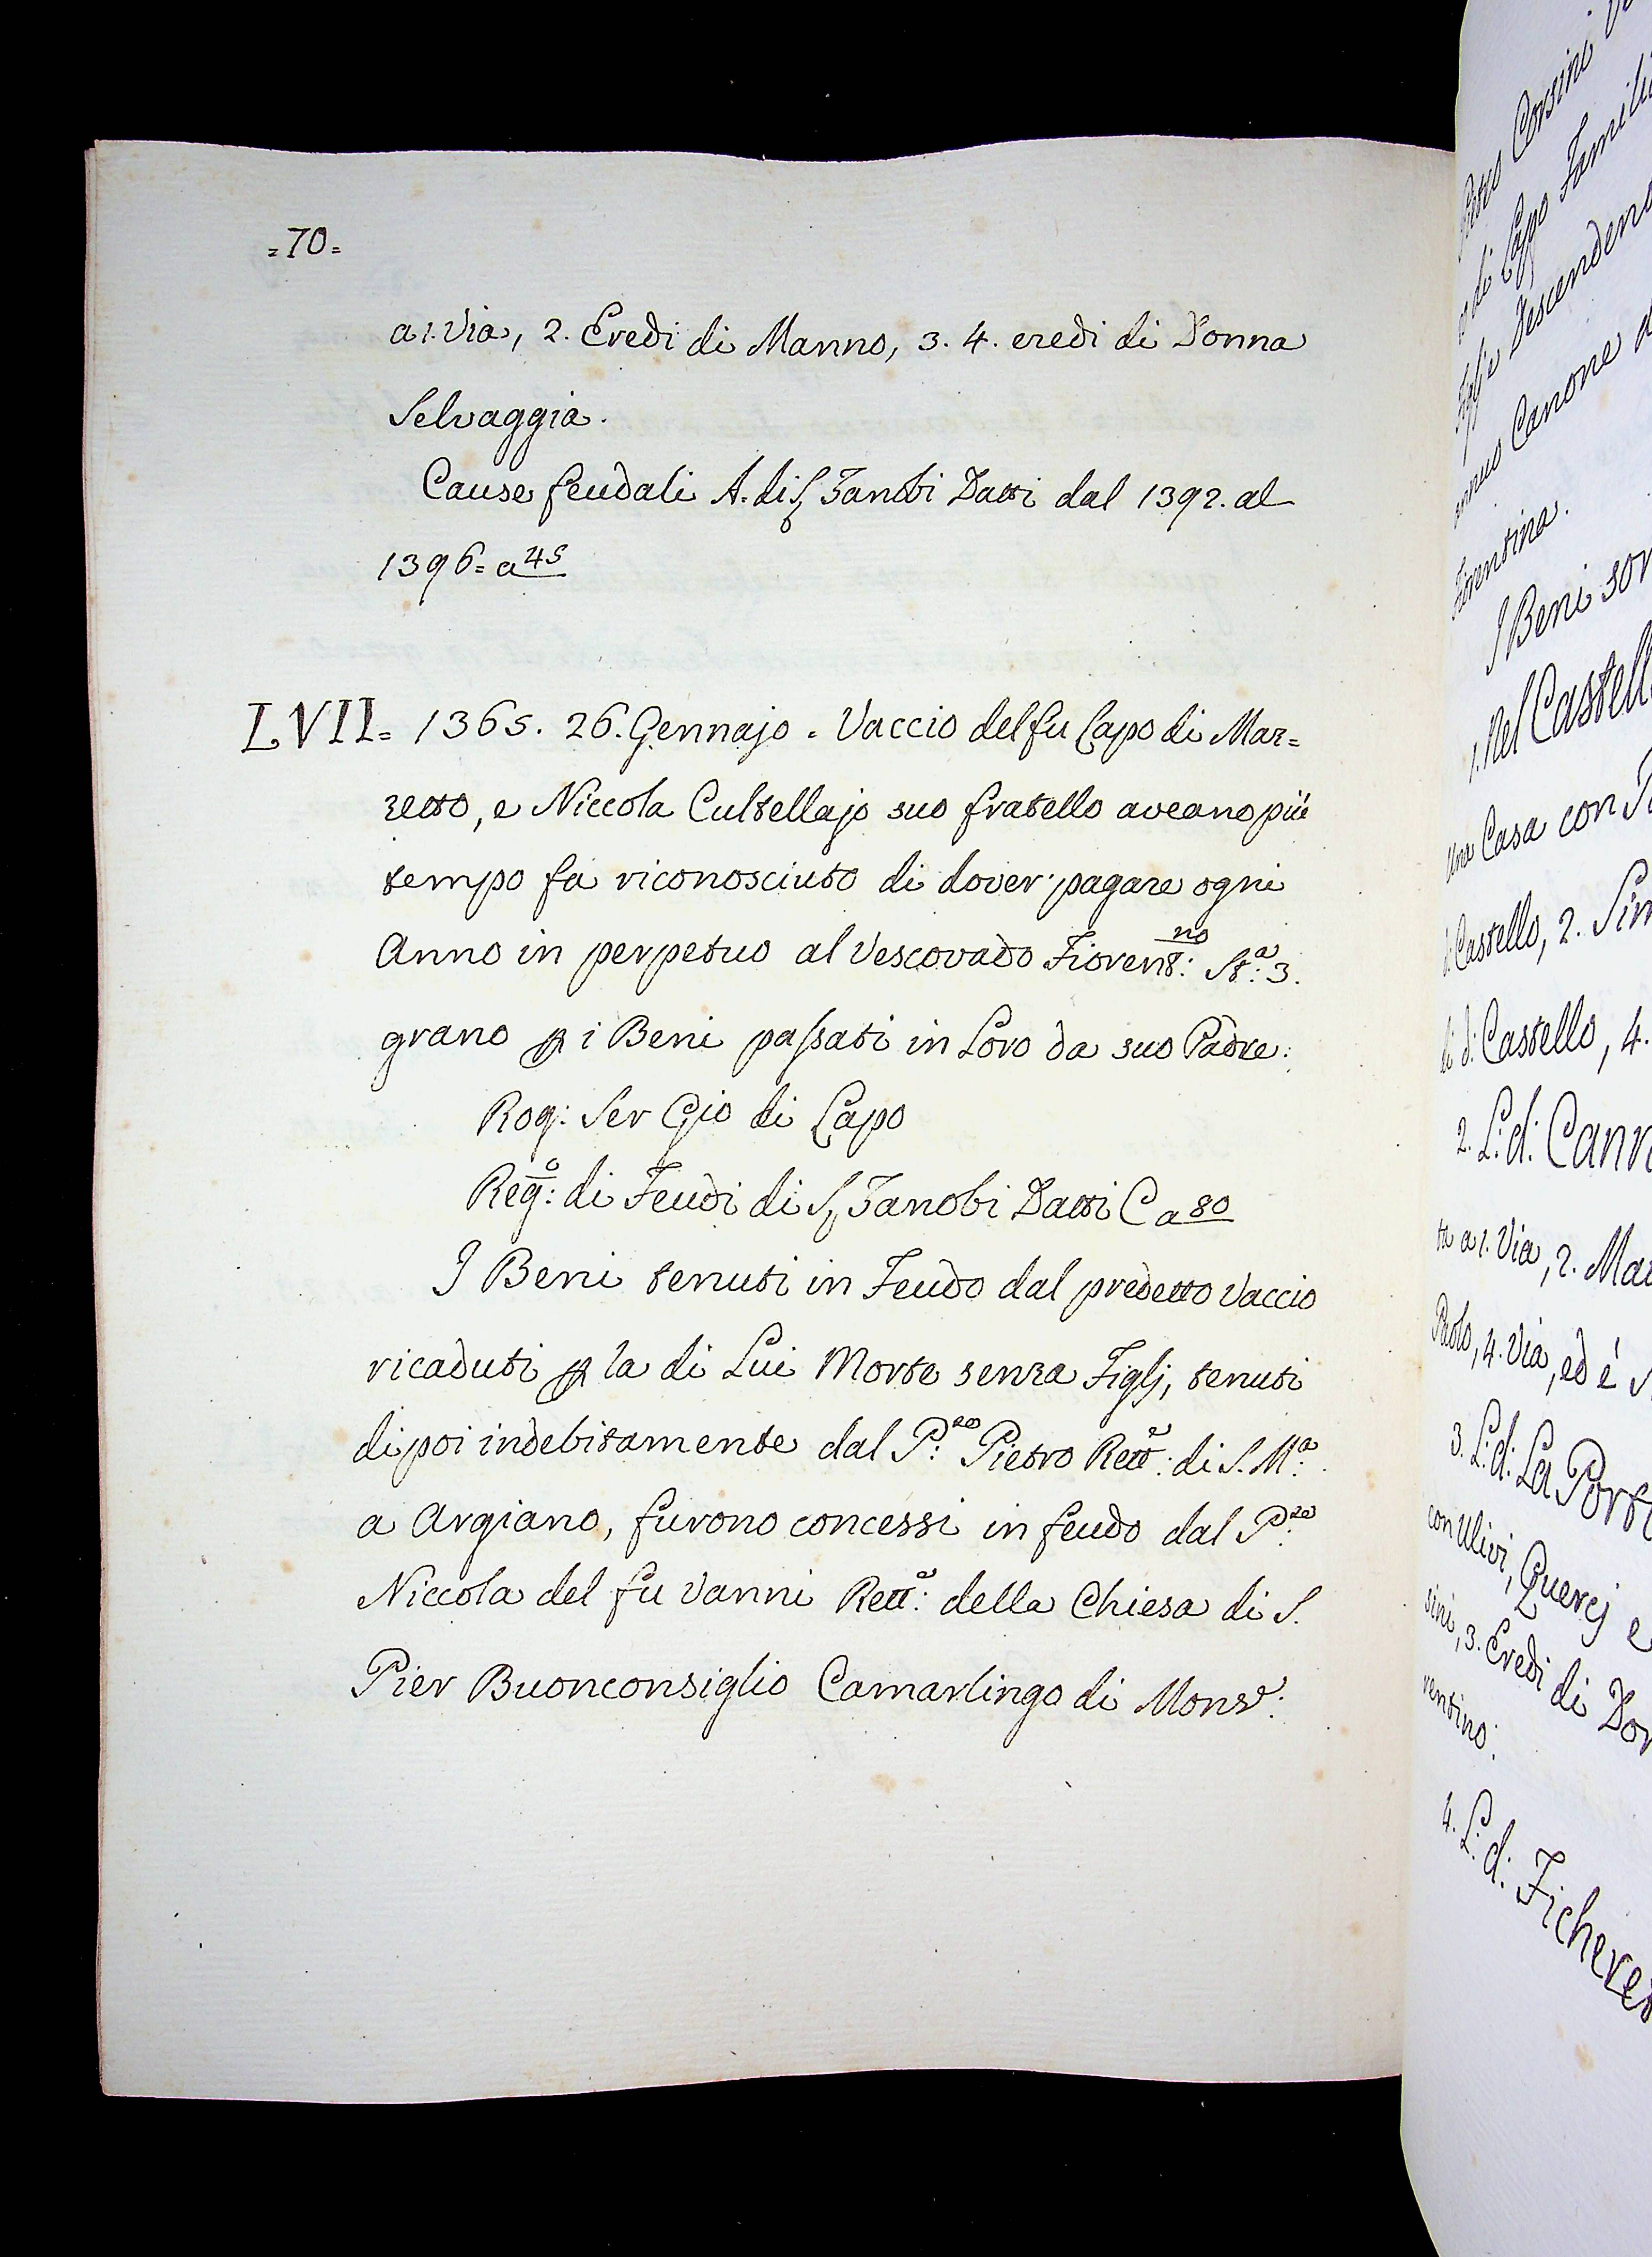 =70=
a 1. Via, 2. Eredi di Manno, 3. 4. eredi di Donna
Selvaggia.
Cause feudali A. di S. Zanobi Datti dal 1392. al
1396= a 45
LVII= 1365. 26. Gennajo. Vaccio del fu Lapo di Mar=
zetto, e Niccola Cultellajo suo fratello aveano più
tempo fa riconosciuto di dover pagare ogni
Anno in perpetuo al Vescovado Fiorent:no St:a 3.
grano ꝑ i Beni paſsati in Loro da suo Padre:
Rog: Ser Gio di Lapo
Reg:o di Feudi di S. Zanobi Datti C a 80
I Beni tenuti in Feudo dal predetto Vaccio
ricaduti ꝑ la di Lui Morte senza Figlj, tenuti
di poi indebitamente dal P:re Pietro Rett:e di S. M:a
a Argiano, furono concessi in feudo dal P:re
Niccola del fu Vanni Rett:e della Chiesa di S.
Pier Buonconsiglio Camarlingo di Monsr:
Pietro Corsini
di Lapo Famili
Figlj e Descendent
annuo Canone
Fiorentina.
I Beni son
1. Nel Castell
Una Casa con
Castello, 2. Sim
di d: Castello, 4.
2. L: d: Cann
ta a 1. Via, 2. Mar
Paolo, 4. Via, ed è
3. L: d: La Port
con Ulivi, Quercj e
sini, 3. Eredi di Don
rentino:
4. L: d: Fichere